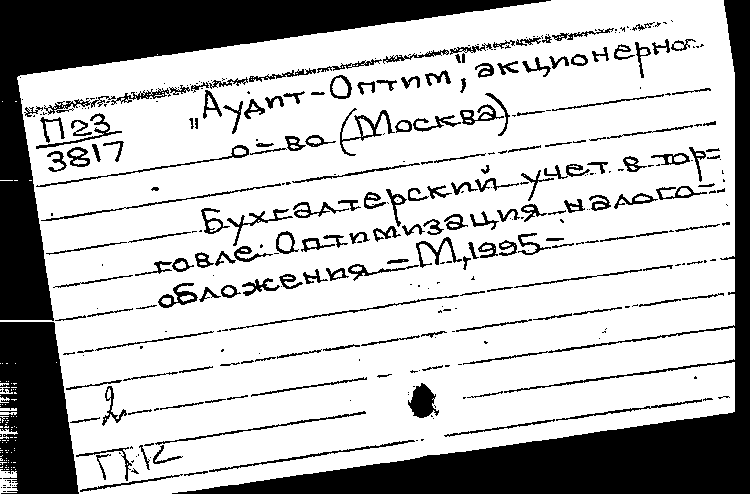 "Аудит-Оптим", акционерное
П23
3817
о-во (Москва)
Бухгалтерский учет в тор=
говле: Оптимизация налого-
обложения – М, 1995 –
2
ГХК